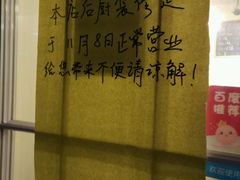 本店后厨装修
于11月8日正常营业
给您带来不便请谅解！
百度
推荐
欢迎使用